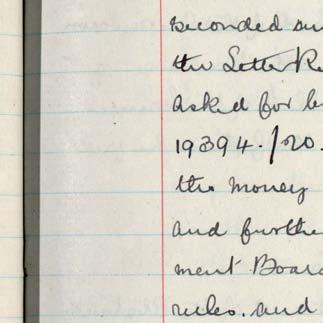 seconded
the Letter
asked for
19394./20.
the money
and furthe
ment Boar
rules. and